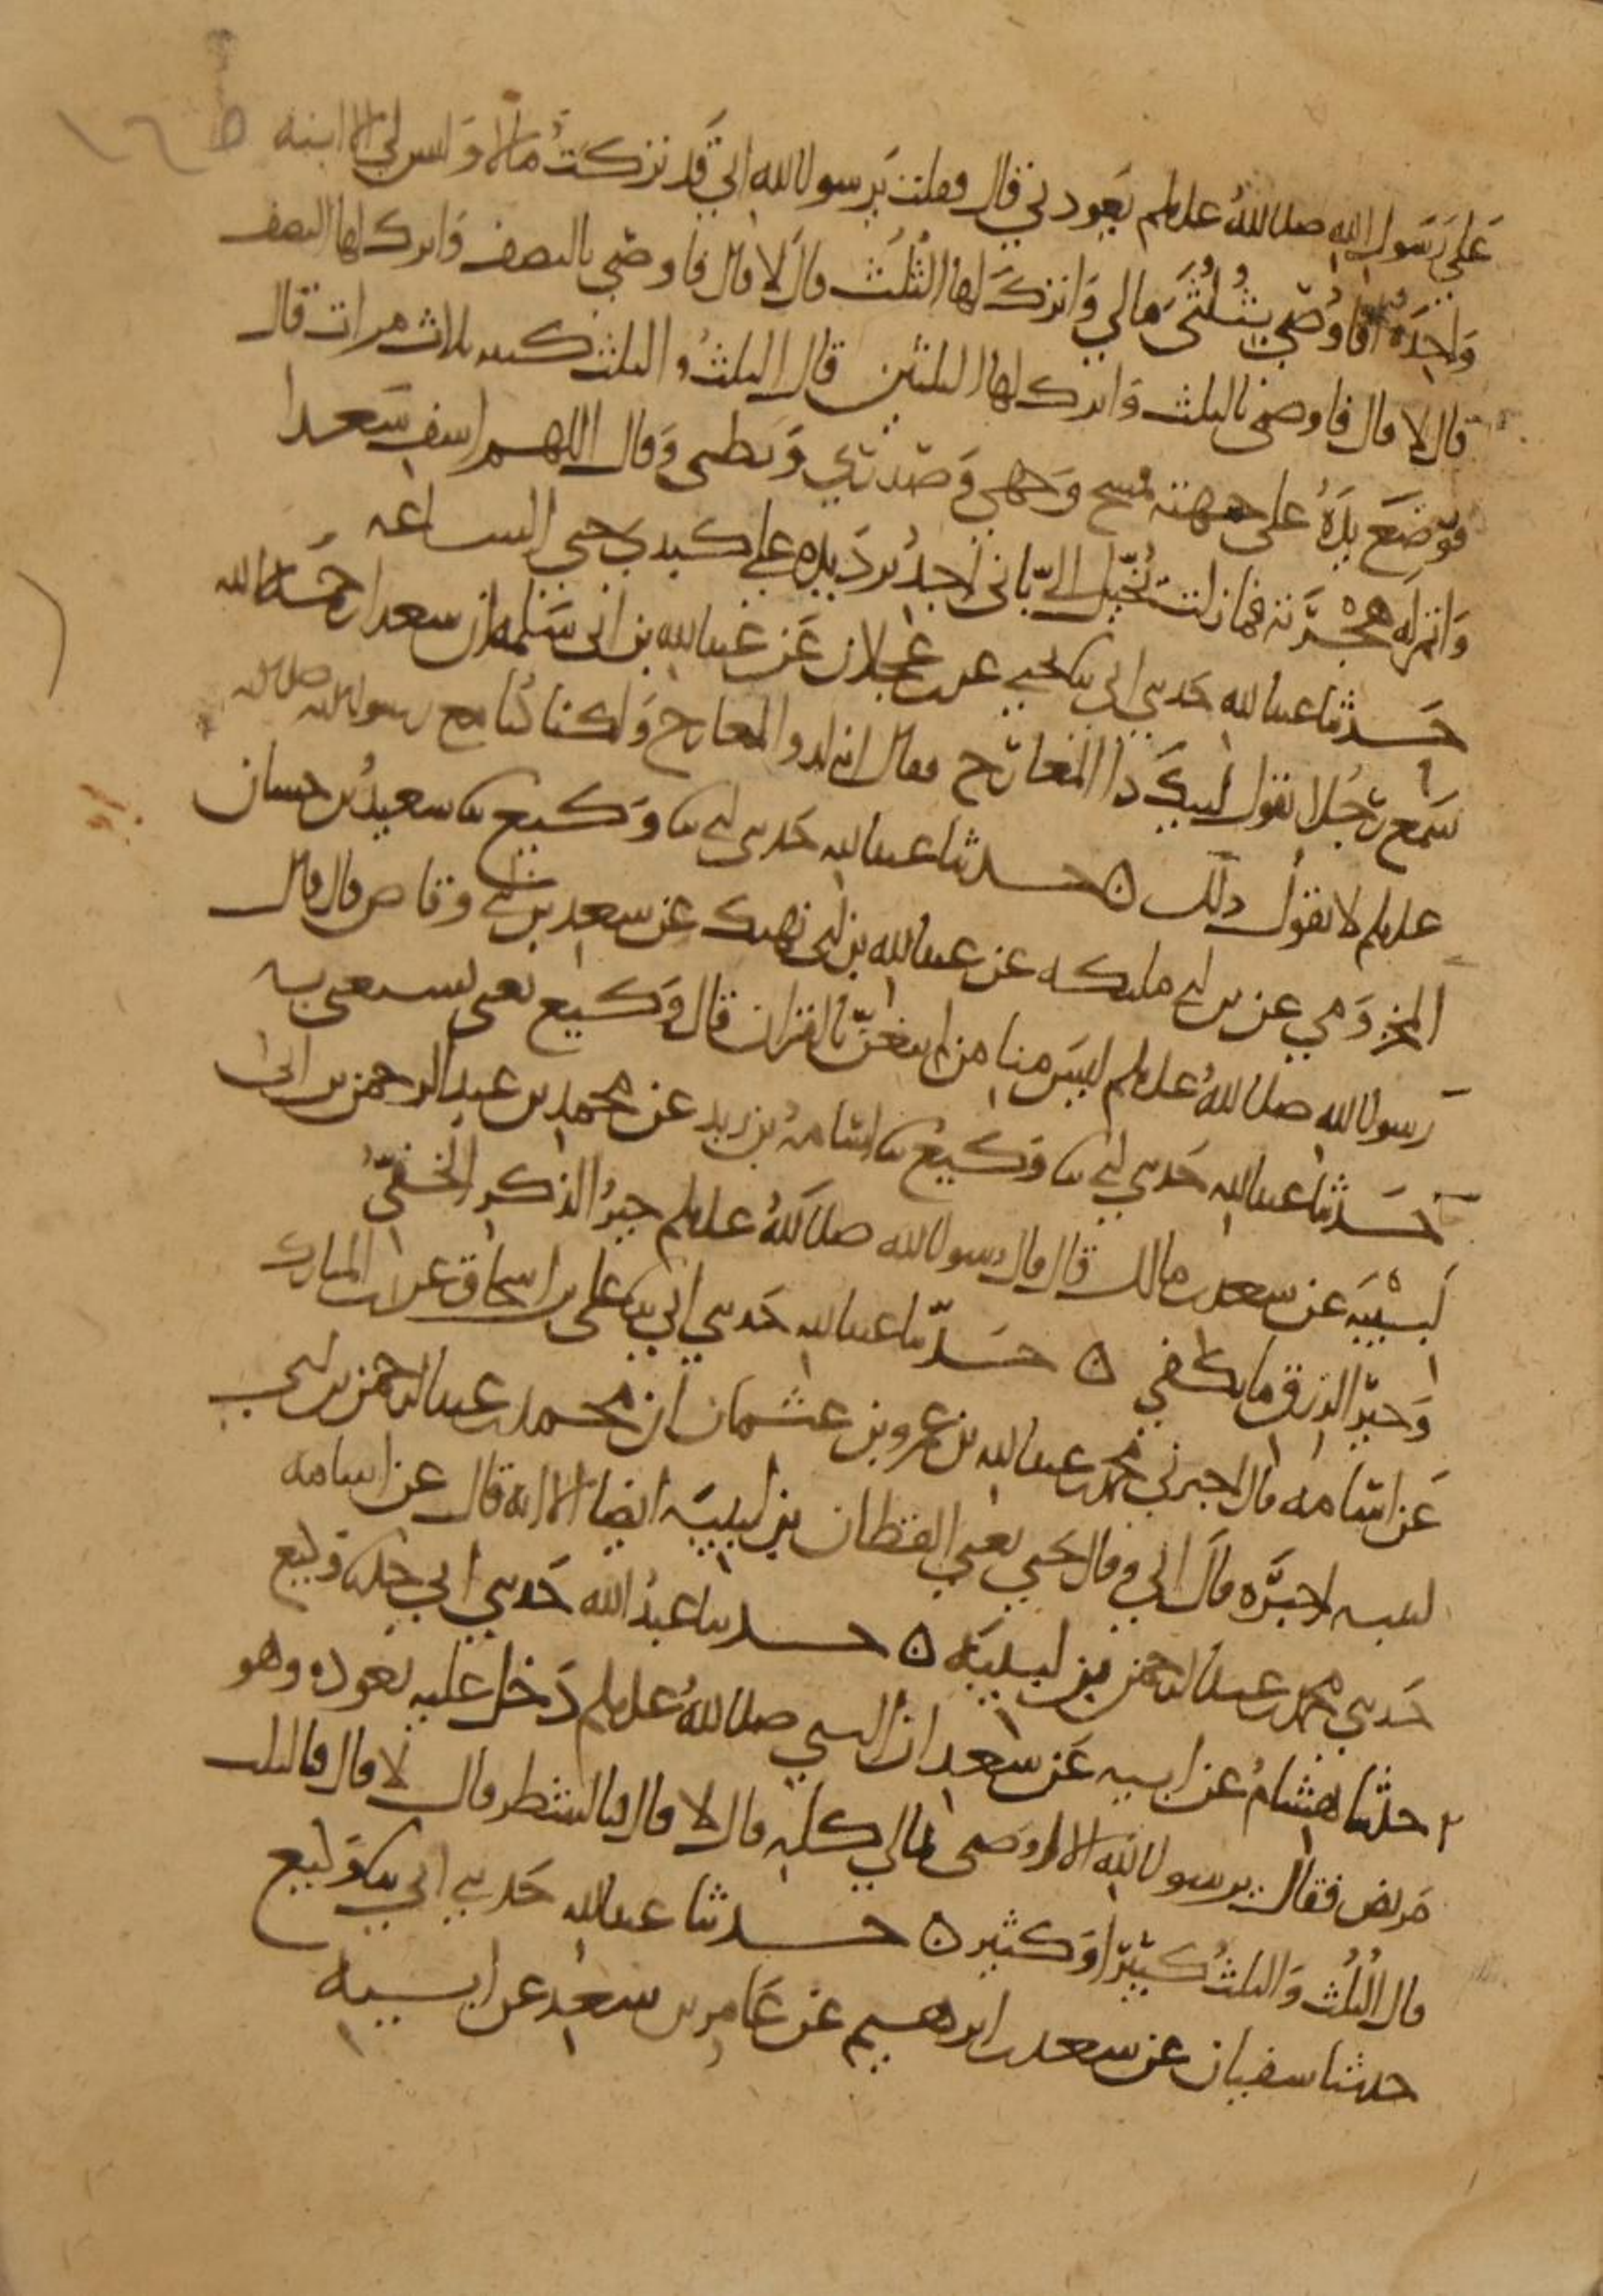 على رسول الله صلى الله عليه وسلم يعودني قال فقلت يرسول الله اني قد تركت مالا وليس لي الا ابنة
واحدة افاوصي بثلثي مالي واترك لها الثلث قال لا قال فاوصي بالنصف واترك لها النصف
قال لا قال فاوصي بالثلث واترك لها الثلثين قال الثلث والثلث كثير ثلاث مرات قال
فوضع يده على جبهته فمسح وجهي وصدري وبطني وقال اللهم اشف سعدا
واتم له هجرته فما زلت يخيل الي باني اجد برد يده على كبدي حتى الساعة
حدثنا عبد الله حدثني ابي ثنا يحيى عن ابن عجلان عن عبد الله بن ابي سلمة ان سعدا رحمه الله
سمع رجلا يقول لبيك ذا المعارج فقال انه لذو المعارج ولكنا كنا مع رسول الله صلى الله
عليه وسلم لا نقول ذلك ه حدثنا عبد الله حدثني ابي ثنا وكيع ثنا سعيد بن حسان
المخزومي عن ابن ابي مليكة عن عبد الله بن ابي نهيك عن سعد بن ابي وقاص قال قال
رسول الله صلى الله عليه وسلم ليس منا من لم يتغن بالقران قال وكيع يعني يستغني به
حدثنا عبد الله حدثني ابي ثنا وكيع ثنا اسامة بن زيد عن محمد بن عبد الرحمن بن ابي
لبيبة عن سعد بن مالك قال قال رسول الله صلى الله عليه وسلم خير الذكر الخفي
وخير الرزق ما يكفي ه حدثنا عبد الله حدثني ابي ثنا علي بن اسحاق عن ابن المبارك
عن اسامة قال اخبرني محمد بن عبد الله بن عمرو بن عثمان ان محمد بن عبد الرحمن بن ابي
لبيبة اخبره قال ابي وقال يحيى يعني القطان بن لبيبة ايضا الا انه قال عن اسامة
حدثني محمد بن عبد الرحمن بن لبيبة ه حدثنا عبد الله حدثني ابي وكيع
حدثنا هشام عن ابيه عن سعد ان النبي صلى الله عليه وسلم دخل عليه يعوده وهو
مريض فقال يرسول الله الا اوصي بمالي كله قال لا قال فبالشطر قال لا قال فالثلث
قال الثلث والثلث كبير او كثير ه حدثنا عبد الله حدثني ابي ثنا وكيع
حدثنا سفيان عن سعد بن ابرهيم عن عامر بن سعد عن ابيه